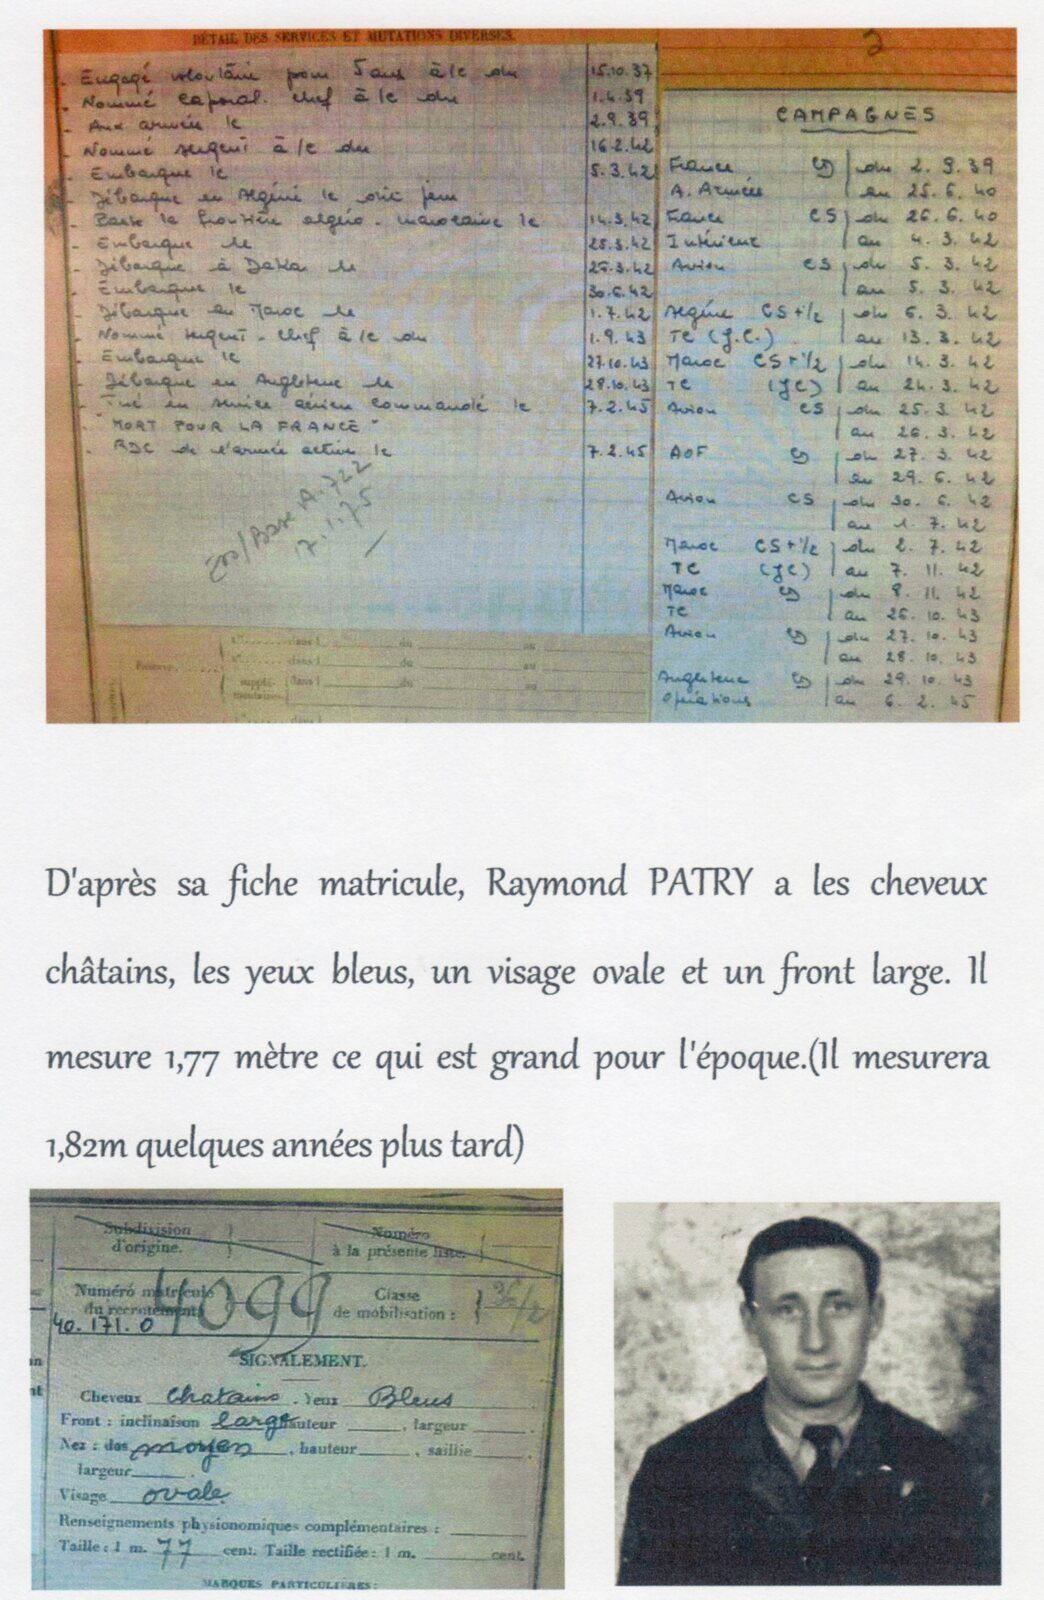 DÉTAIL DES SERVICES ET MUTATIONS DIVERSES.
- Engagé volontaire pour 5 ans à/c du 15.10.37
- Nommé Caporal. chef à/c du 1.4.39
- Aux armées le 2.9.39
- Nommé sergent à/c du 16.2.42
- Embarque le 5.3.42
- Débarque en Algérie le dit jour
- Passe la frontière algéro-marocaine le 14.3.42
- Embarque le 25.3.42
- Débarque à Dakar le 26.3.42
- Embarque le 30.6.42
- Débarque au Maroc le 1.7.42
- Nommé sergent-chef à/c du 1.9.43
- Embarque le 27.10.43
- Débarque en Angleterre le 28.10.43
- Tué en service aérien commandé le 7.2.45
"MORT POUR LA FRANCE"
- RDC de l'armée active le 7.2.45
Base A.722
17.1.75
CAMPAGNES
France du 2.9.39
A. Armées au 25.6.40
France CS du 26.6.40
Intérieur au 4.3.42
Avion CS du 5.3.42
au 5.3.42
Algérie CS+1/2 du 6.3.42
TC (J.C.) au 13.3.42
Maroc CS+1/2 du 14.3.42
TC (JC) au 24.3.42
Avion CS du 25.3.42
au 26.3.42
AOF du 27.3.42
au 29.6.42
Avion CS du 30.6.42
au 1.7.42
Maroc CS+1/2 du 2.7.42
TC (JC) au 7.11.42
Maroc du 8.11.42
TC au 26.10.43
Avion du 27.10.43
au 28.10.43
Angleterre du 29.10.43
Opérations au 6.2.45
D'après sa fiche matricule, Raymond PATRY a les cheveux
châtains, les yeux bleus, un visage ovale et un front large. Il
mesure 1,77 mètre ce qui est grand pour l'époque.(Il mesurera
1,82m quelques années plus tard)
Subdivision d'origine.
Numéro à la présente liste.
Numéro matricule du recrutement
40.171.0
4099
Classe de mobilisation :
SIGNALEMENT.
Cheveux Chatains. Yeux Bleus
Front : inclinaison large hauteur , largeur
Nez : dos moyen , hauteur , saillie
largeur .
Visage ovale
Renseignements physionomiques complémentaires :
Taille : 1 m. 77 cent. Taille rectifiée : 1 m. cent.
MARQUES PARTICULIÈRES :